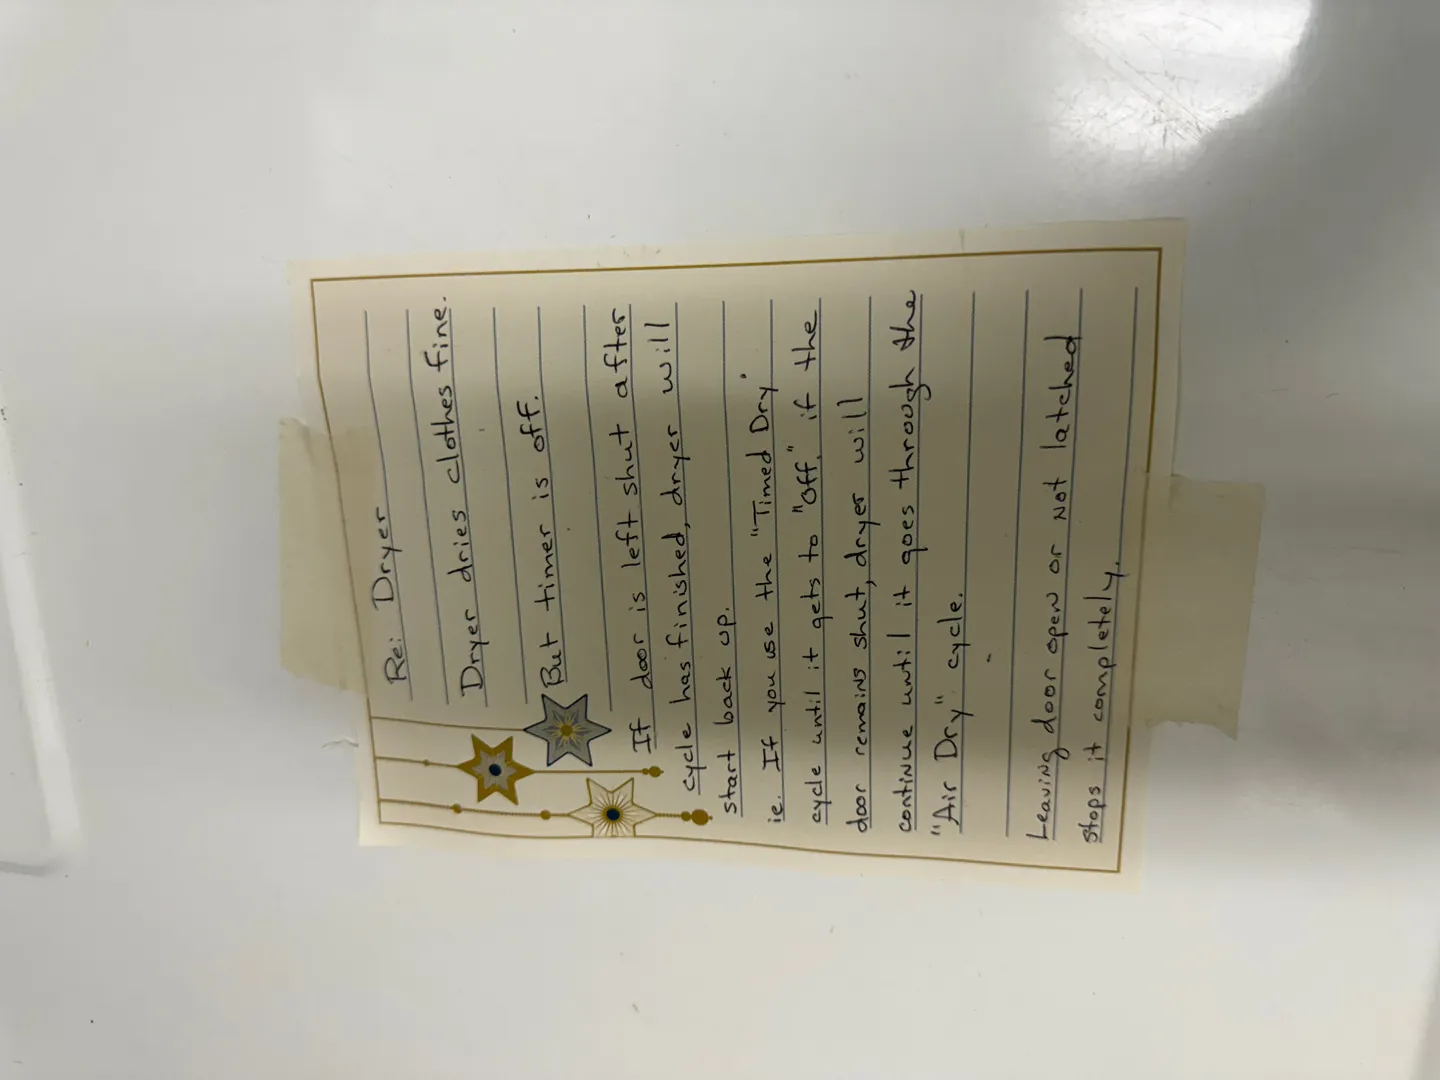 Re: Dryer
Dryer dries clothes fine.
But timer is off.
If door is left shut after
cycle has finished, dryer will
start back up.
ie. If you use the "Timed Dry"
cycle until it gets to "off," if the
door remains shut, dryer will
continue until it goes through the
"Air Dry" cycle.
Leaving door open or not latched
stops it completely.